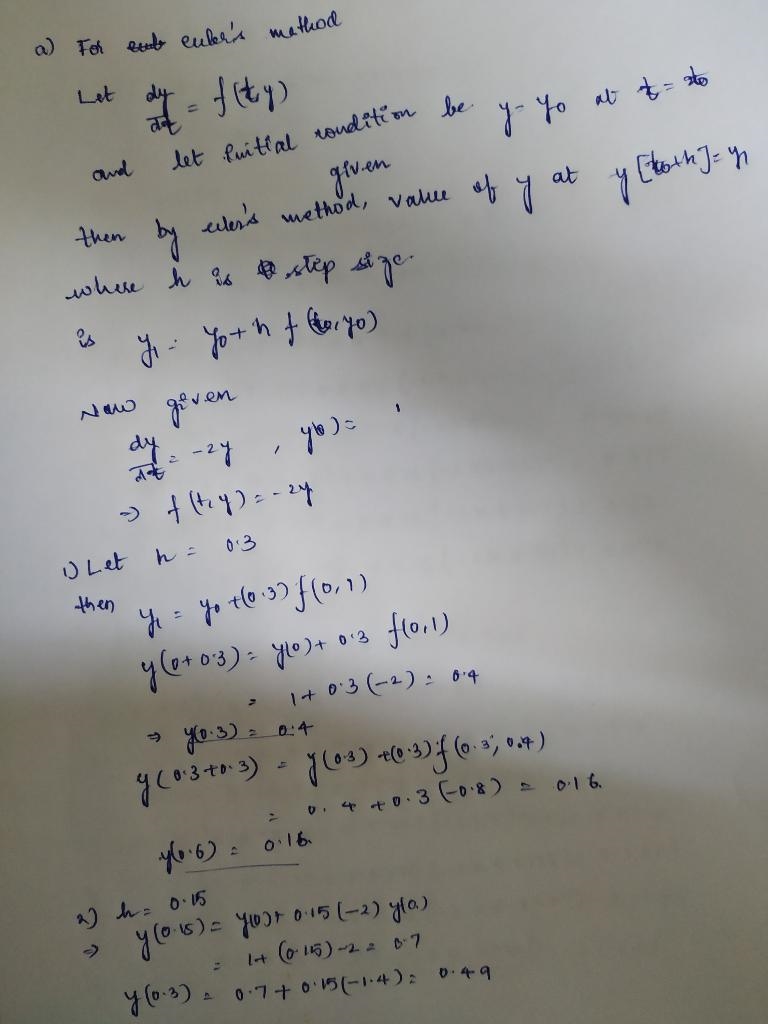 a) For euler's method
Let dy/dt = f(t,y)
and let initial condition be y=y0 at t=t0
given
then by euler's method, value of y at y[t0+h]=y1
where h is step size.
is y1 = y0+h f(t0,y0)
Now given
dy/dt = -2y , y(0)= 1
⇒ f(t,y)=-2y
1) Let h = 0.3
then y1 = y0 +(0.3) f(0,1)
y(0+0.3) = y(0)+ 0.3 f(0,1)
= 1+0.3(-2) = 0.4
⇒ y(0.3) = 0.4
y(0.3+0.3) = y(0.3) +(0.3) f(0.3, 0.4)
= 0.4 +0.3(-0.8) = 0.16.
y(0.6) = 0.16.
2) h= 0.15
⇒ y(0.15) = y(0)+ 0.15(-2) y(0)
= 1+(0.15)-2 = 0.7
y(0.3) = 0.7+0.15(-1.4) = 0.49